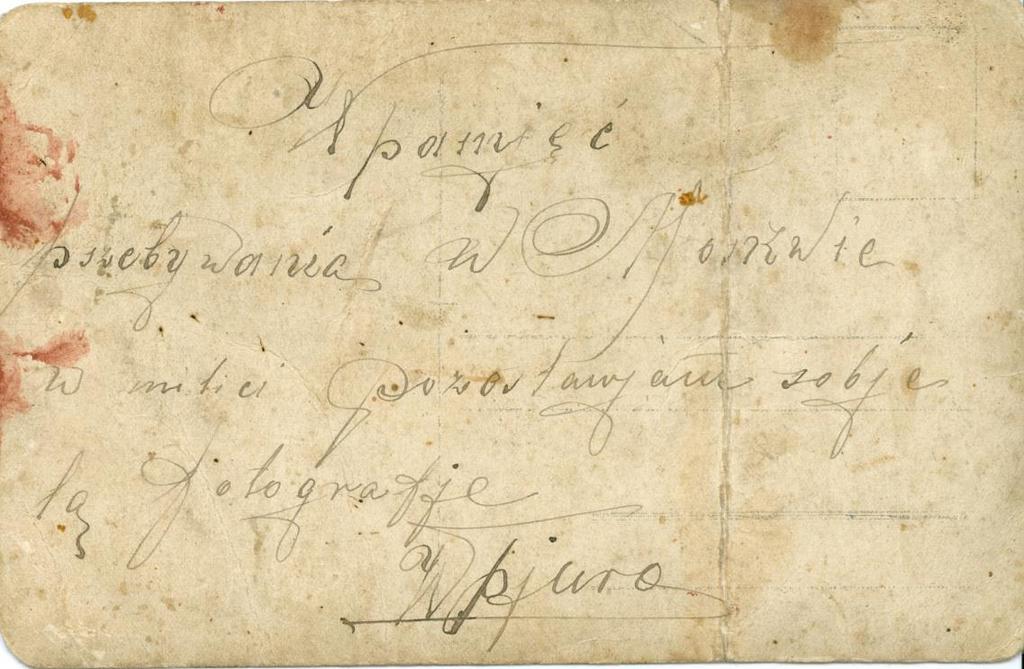 W pamięć
pszebywania w Moskwie
w milici pozostawjam sobje
tą fotografje
W pjuro